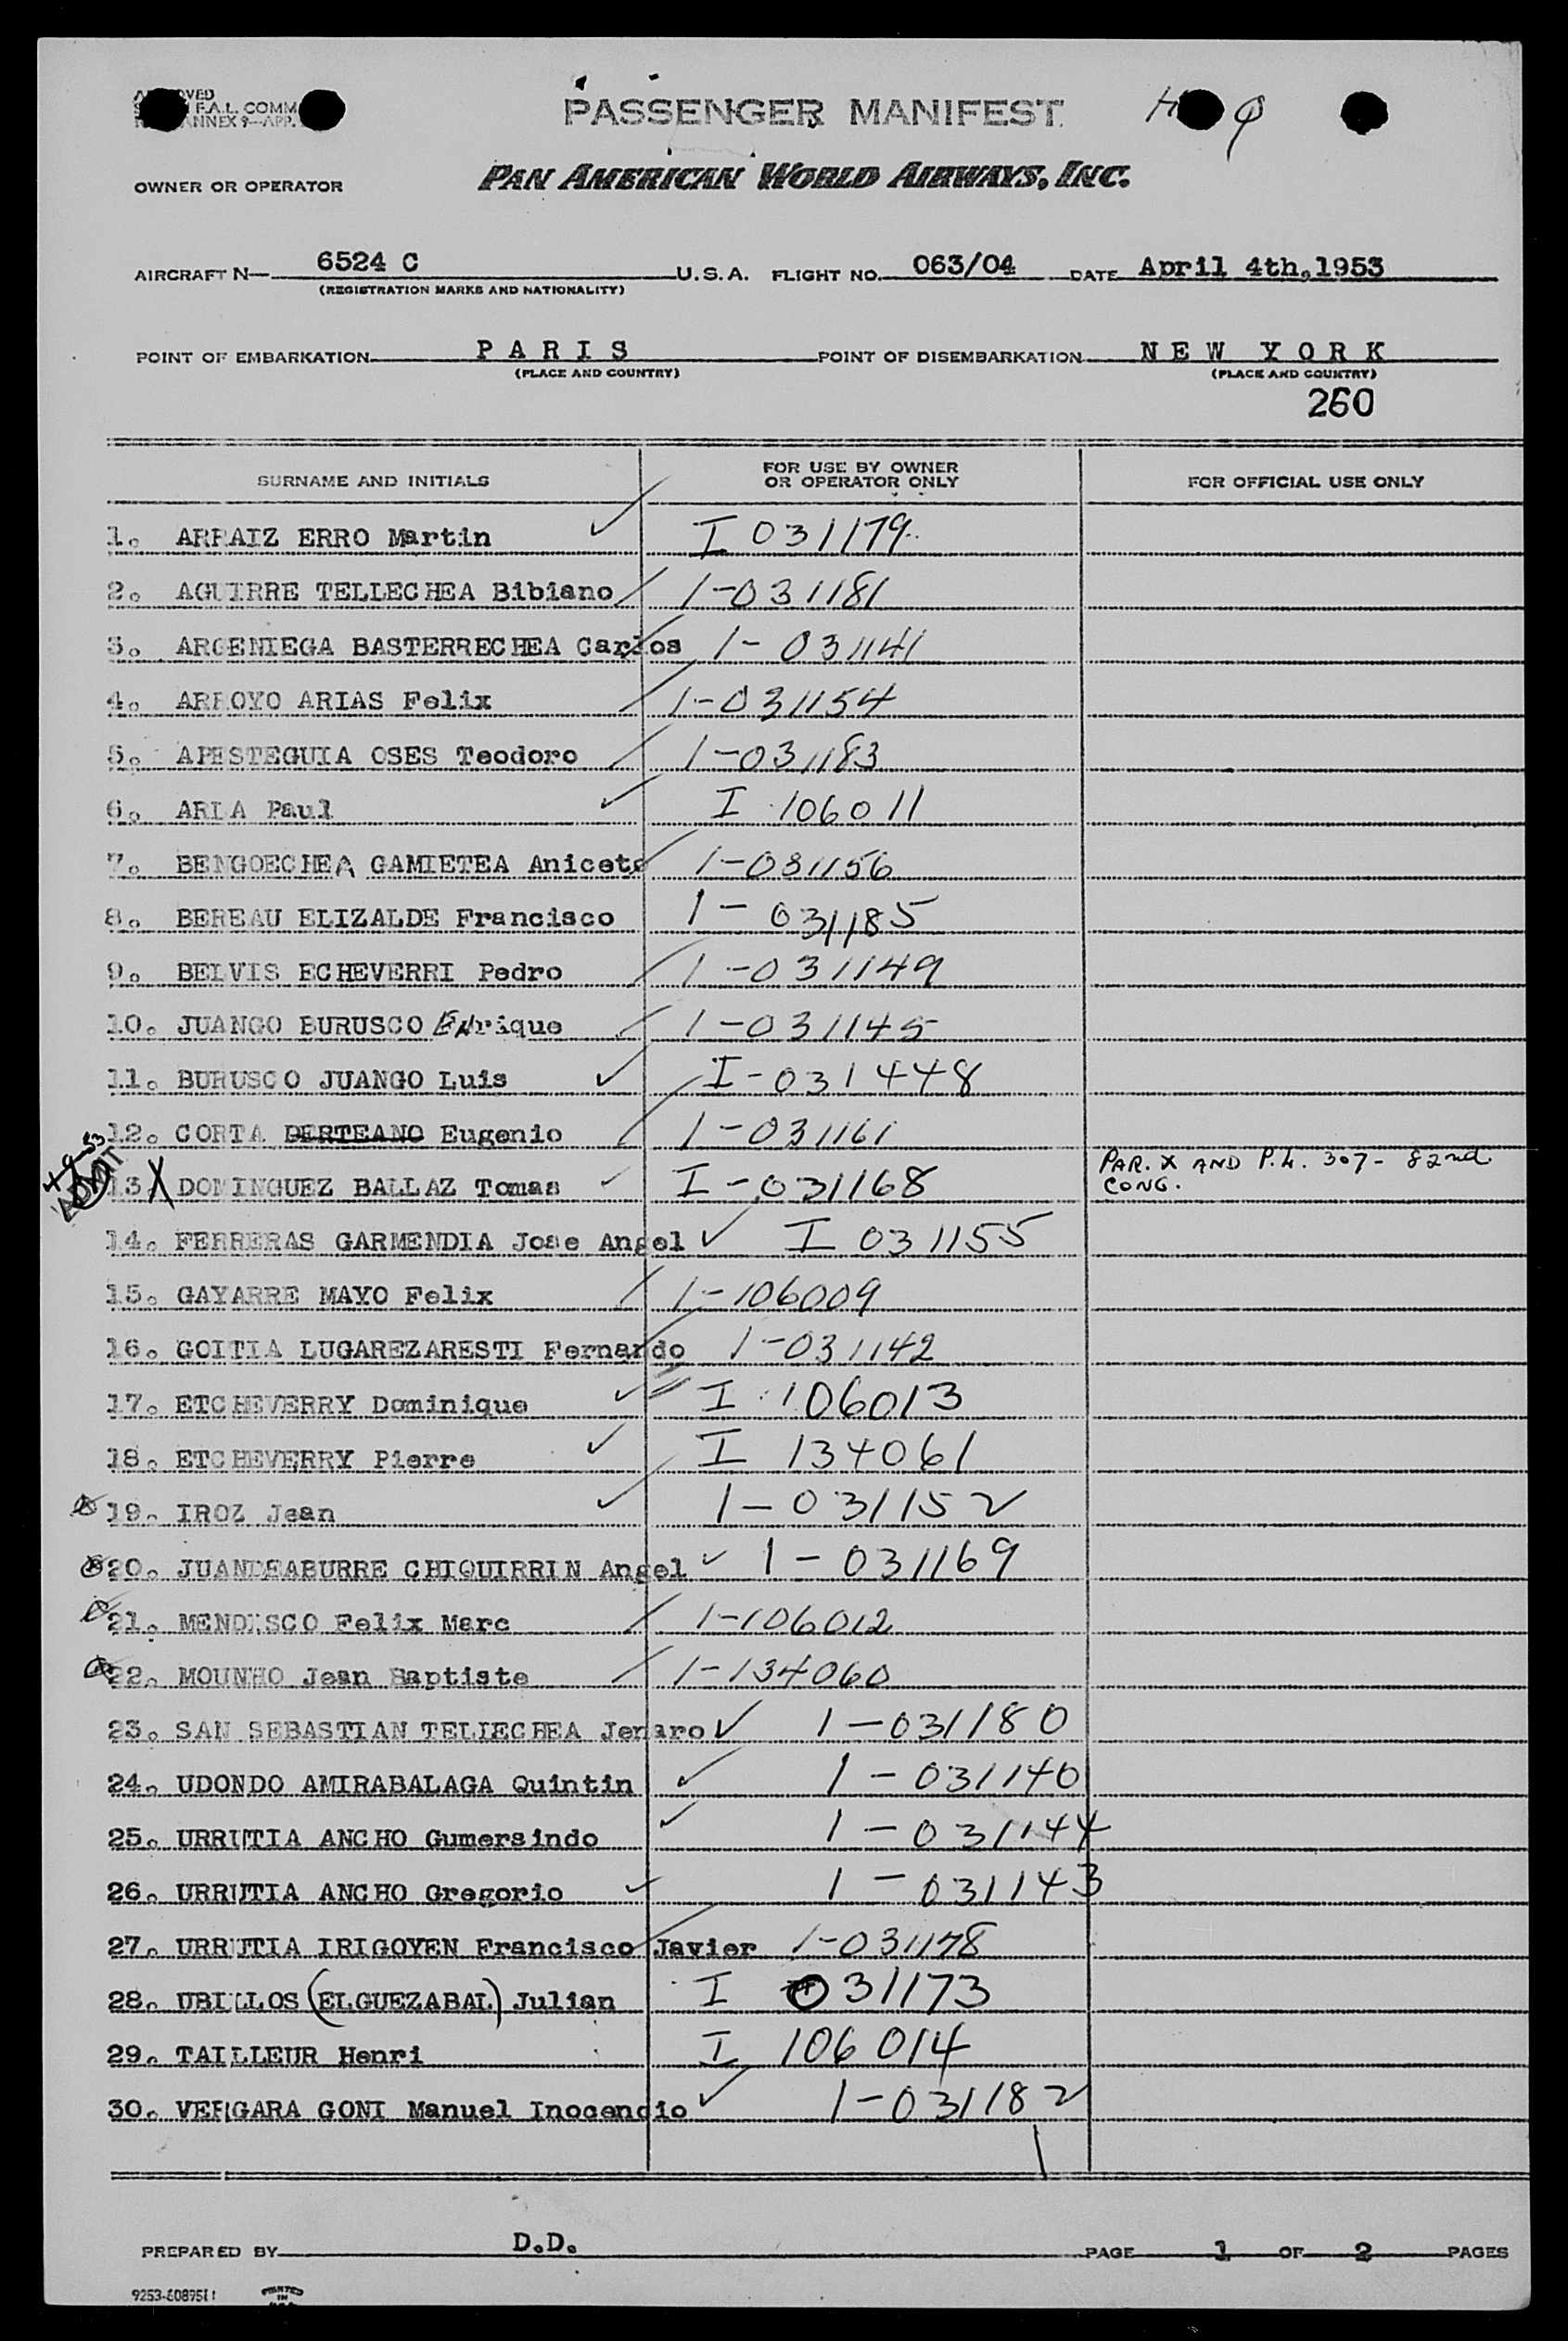 F.A.L. COMM
ANNEX 9-APP.
PASSENGER MANIFEST
OWNER OR OPERATOR PAN AMERICAN WORLD AIRWAYS, INC.
AIRCRAFT N— 6524 C U.S.A. FLIGHT NO. 063/04 DATE April 4th,1953
(REGISTRATION MARKS AND NATIONALITY)
POINT OF EMBARKATION P A R I S POINT OF DISEMBARKATION N E W Y O R K
(PLACE AND COUNTRY) (PLACE AND COUNTRY)
260
SURNAME AND INITIALS FOR USE BY OWNER OR OPERATOR ONLY FOR OFFICIAL USE ONLY
1. ARRAIZ ERRO Martin I 031179
2. AGUIRRE TELLECHEA Bibiano 1-031181
3. ARGENIEGA BASTERRECHEA Carlos 1-031141
4. ARROYO ARIAS Felix 1-031154
5. APESTEGUIA OSES Teodoro 1-031183
6. ARLA Paul I 106011
7. BENGOECHEA GAMIETEA Aniceto 1-031156
8. BEREAU ELIZALDE Francisco 1-031185
9. BELVIS ECHEVERRI Pedro 1-031149
10. JUANGO BURUSCO ENrique 1-031145
11. BURUSCO JUANGO Luis I-031448
12. CORTA DERTEANO Eugenio 1-031161
4-9-53 ADMIT
13 X DOMINGUEZ BALLAZ Tomas I-031168 PAR. X AND P.L. 307- 82nd CONG.
14. FERRERAS GARMENDIA Jose Angel I 031155
15. GAYARRE MAYO Felix 1-106009
16. GOITIA LUGAREZARESTI Fernando 1-031142
17. ETCHEVERRY Dominique I 106013
18. ETCHEVERRY Pierre I 134061
19. IROZ Jean 1-031152
20. JUANDEABURRE CHIQUIRRIN Angel 1-031169
21. MENDISCO Felix Marc 1-106012
22. MOUNHO Jean Baptiste 1-134060
23. SAN SEBASTIAN TELLECHEA Jenaro 1-031180
24. UDONDO AMIRABALAGA Quintin 1-031140
25. URRUTIA ANCHO Gumersindo 1-031144
26. URRUTIA ANCHO Gregorio 1-031143
27. URRUTIA IRIGOYEN Francisco Javier 1-031178
28. UBILLOS (ELGUEZABAL) Julian I 031173
29. TAILLEUR Henri I 106014
30. VERGARA GONI Manuel Inocencio 1-031182
PREPARED BY D.D. PAGE 1 OF 2 PAGES
PRINTED IN